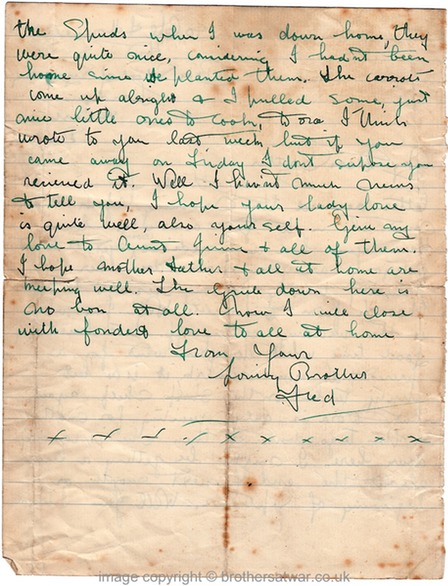 the Spuds when I was down home, they
were quite nice, considering I hadnt been
home since we planted them. The carrots
come up alright & I pulled some, just
nice little ones to cook, I think
wrote to you last week but if you
came away on Friday I dont supose you
recieved it. Well I havnt much news
to tell you, I hope your lady love
is quite well, also your self Give my
love to Aunt & all of them.
I hope mother Father & all at home are
keeping well. The down here is
no bon at all. I will close
with fondest love to all at home
From Your
Loving Brother
Fred
x x x x x x x x x x
image copyright © brothersatwar.co.uk